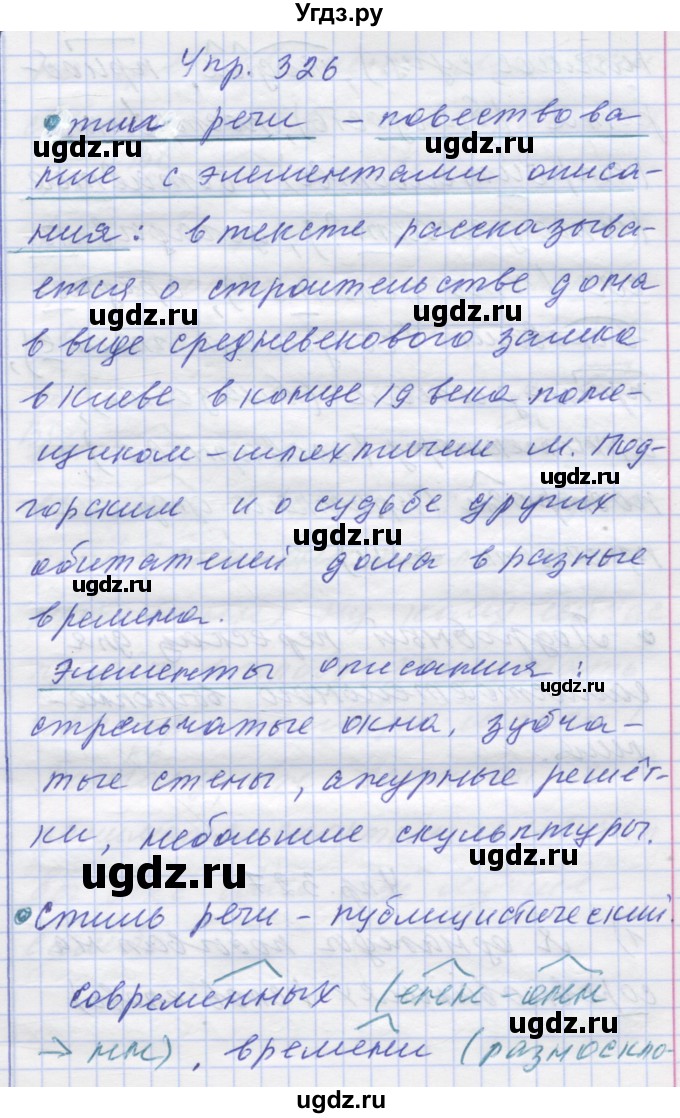 Угдз.ру
Упр. 326
Тип речи – повествова
ние с элементами описа-
ния: в тексте рассказыва-
ется о строительстве дома
в виде средневекового замка
в Киеве в конце 19 века поме-
щиком-шляхтичем М. Под-
горским и о судьбе других
обитателей дома в разные
времена.
Элементы описания:
стрельчатые окна, зубча-
тые стены, ажурные решёт-
ки, небольшие скульптуры.
Стиль речи – публицистический.
современных (енн-онн
→ нн), времени (разноскло-
ugdz.ru